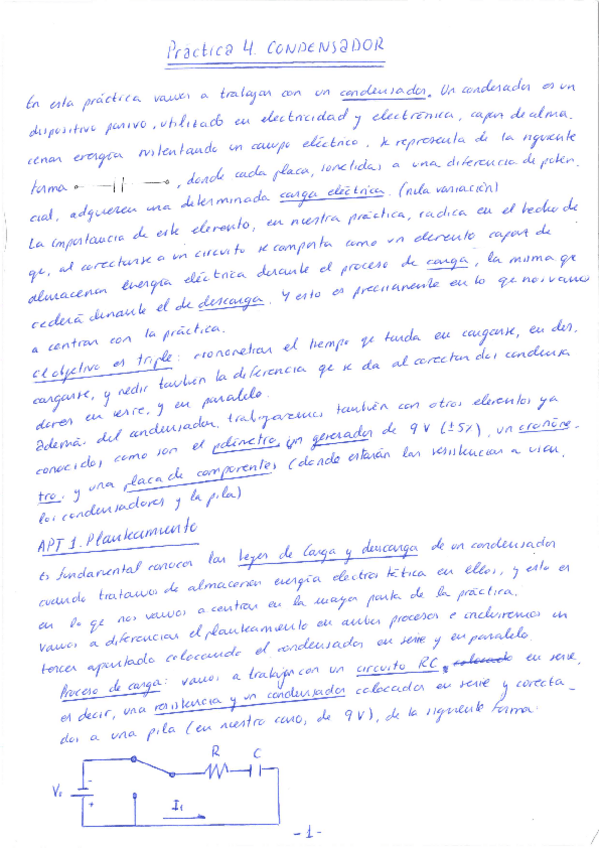 Práctica 4. CONDENSADOR
En esta práctica vamos a trabajar con un condensador. Un condensador es un
dispositivo pasivo, utilizado en electricidad y electrónica, capaz de alma-
cenar energía sustentando un campo eléctrico. Se representa de la siguiente
forma , donde cada placa, sometidas a una diferencia de poten-
cial, adquieren una determinada carga eléctrica. (nula variación)
La importancia de este elemento, en nuestra práctica, radica en el hecho de
qe, al conectarse a un circuito se comporta como un elemento capaz de
almacenar energía eléctrica durante el proceso de carga, la misma que
cederá durante el de descarga. Y esto es precisamente en lo qe nos vamos
a centrar con la práctica.
El objetivo es triple: cronometrar el tiempo qe tarda en cargarse, en des-
cargarse, y medir también la diferencia que se da al conectar dos condensa
dores en serie, y en paralelo.
Además del condensador, trabajaremos también con otros elementos ya
conocidos como son el polímetro, un generador de 9V (±5%), un cronóme-
tro, y una placa de componentes (donde estarán las resistencias a usar,
los condensadores y la pila)
APT 1. Planteamiento
Es fundamental conocer las leyes de Carga y descarga de un condensador
cuando tratamos de almacenar energía electrostática en ellos, y esto es
en lo qe nos vamos a centrar en la mayor parte de la práctica.
Vamos a diferenciar el planteamiento en ambos procesos e incluiremos un
tercer apartado colocando el condensador en serie y en paralelo.
Proceso de carga: vamos a trabajar con un circuito RC, colocado en serie,
es decir, una resistencia y un condensador colocados en serie y conecta-
dos a una pila (en nuestro caso, de 9V), de la siguiente forma:
R C
V₀ - +
I₁
-1-